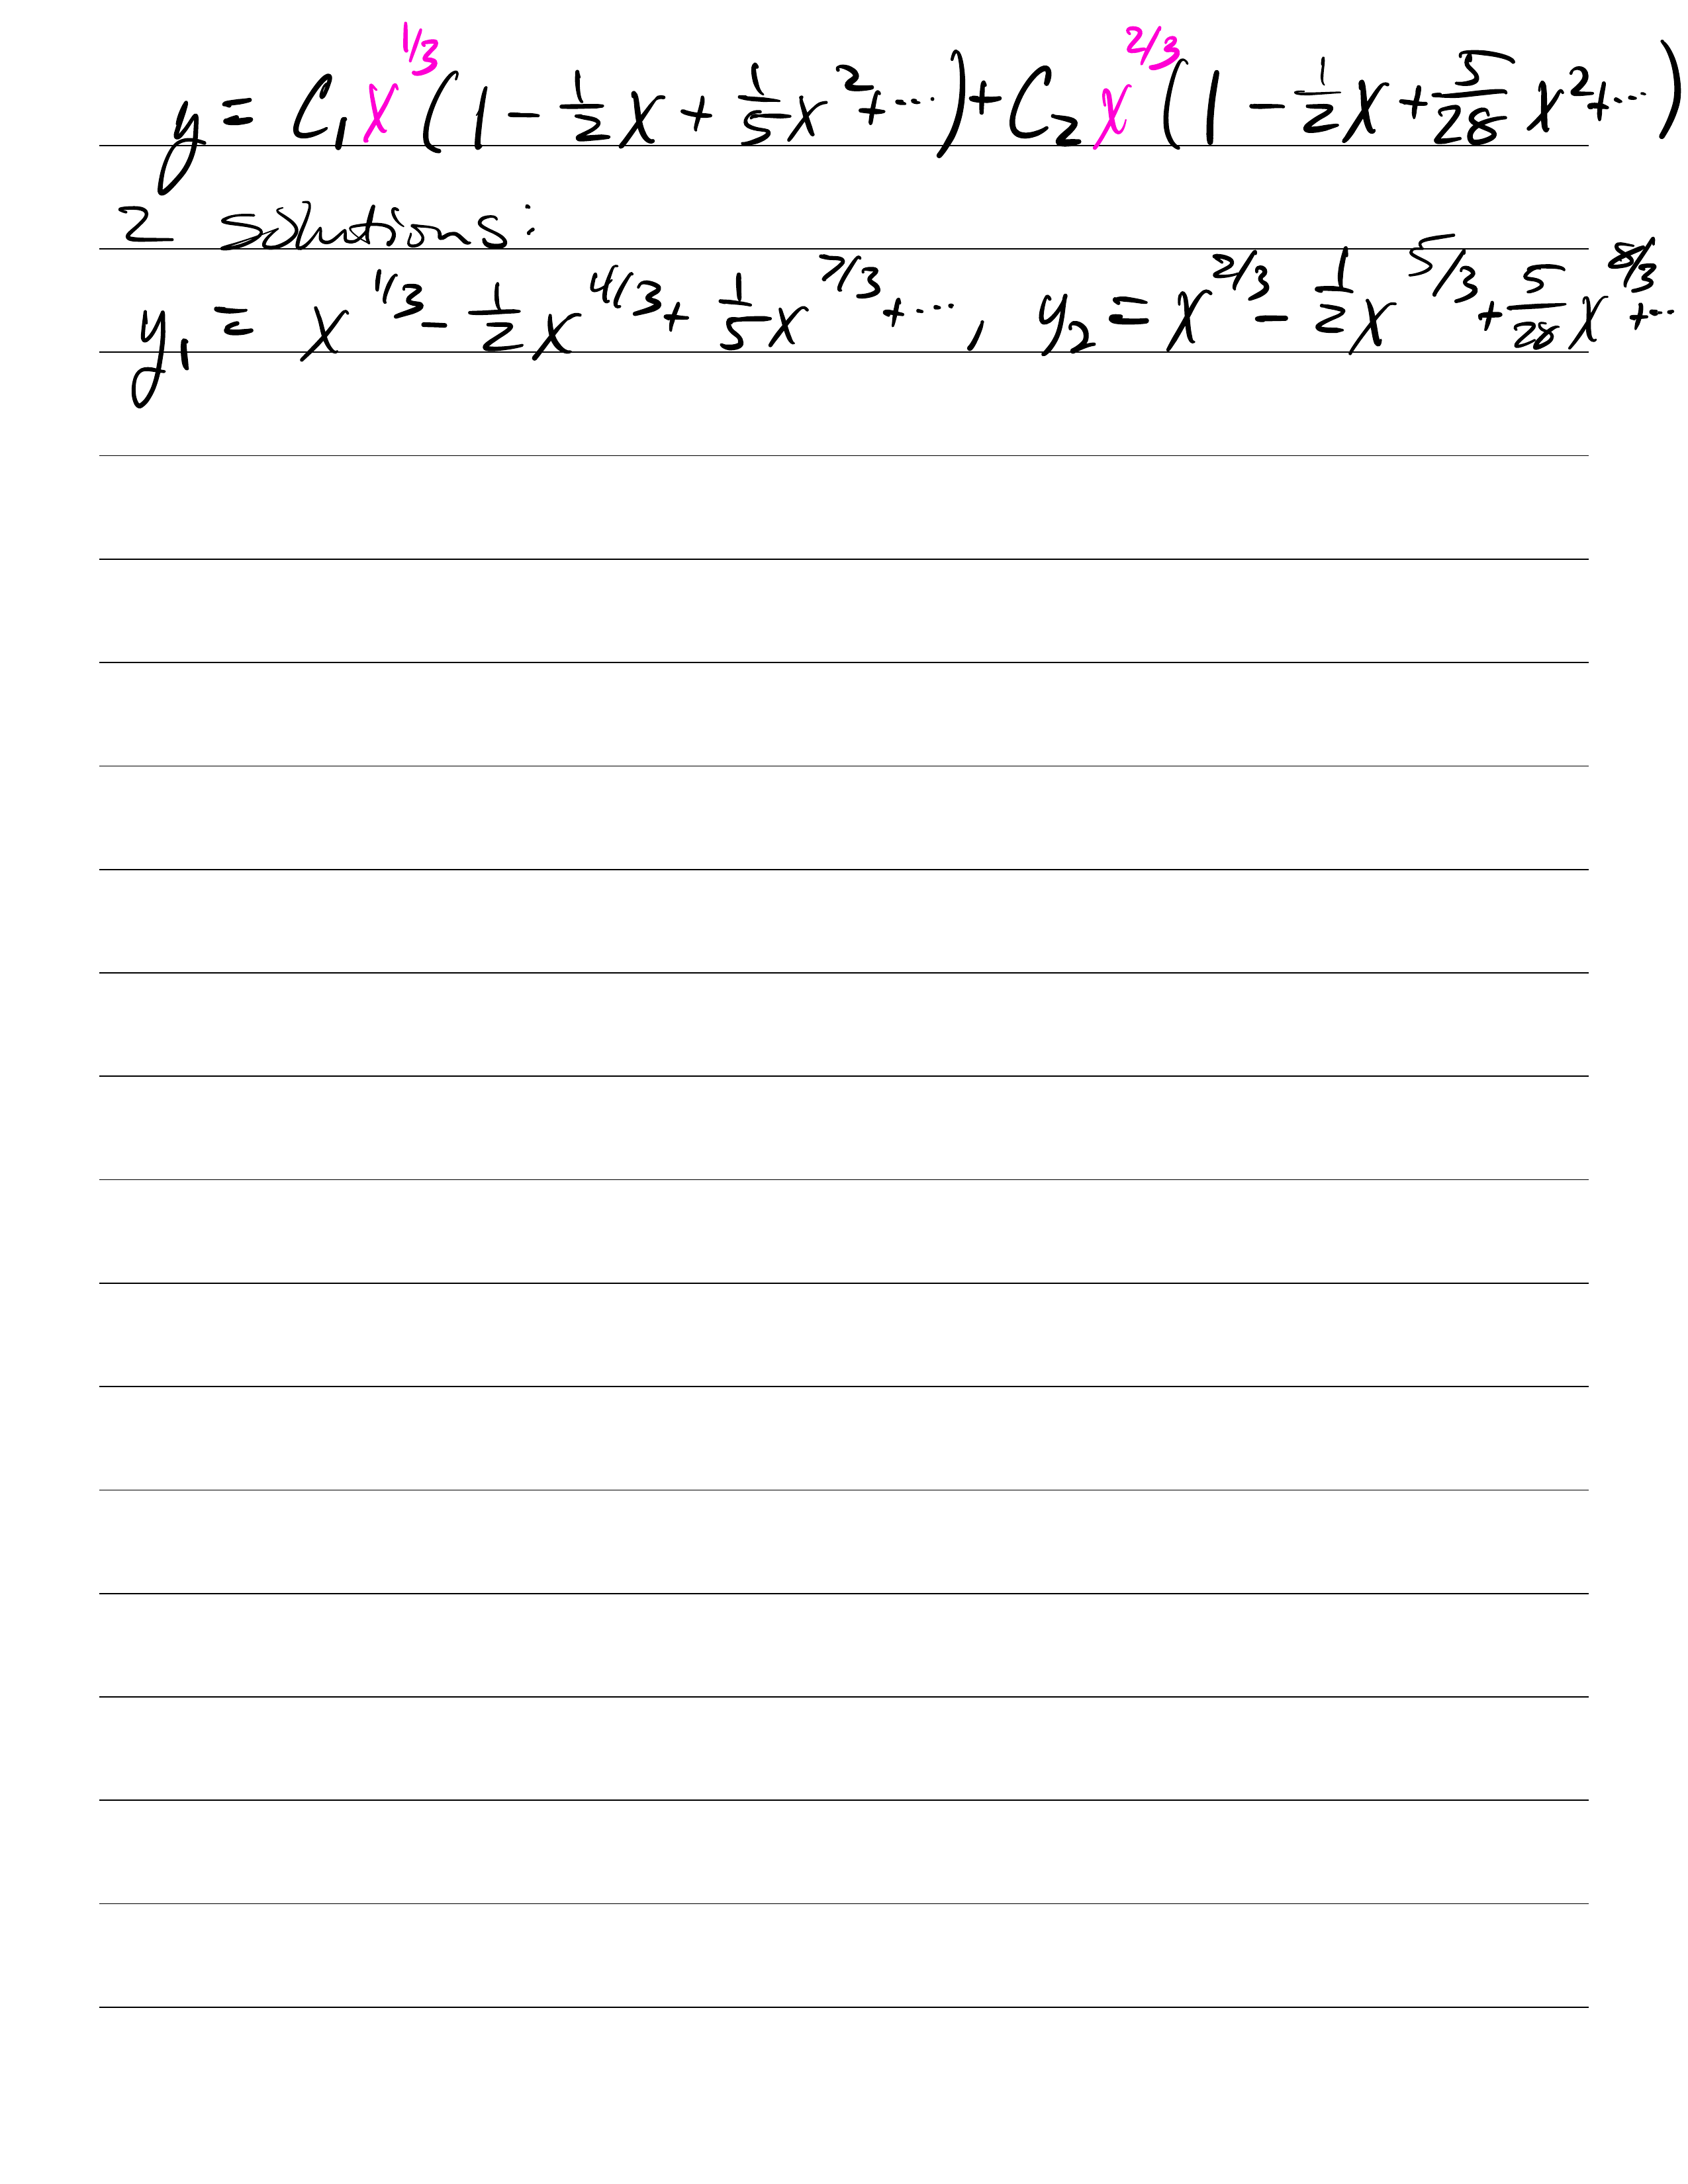 y = C₁x^(1/3) (1 - 1/2 x + 1/5 x² + ⋯) + C₂x^(2/3) (1 - 1/2 x + 5/28 x² + ⋯)
2 solutions:
y₁ = x^(1/3) - 1/2 x^(4/3) + 1/5 x^(7/3) + ⋯ , y₂ = x^(2/3) - 1/2 x^(5/3) + 5/28 x^(8/3) + ⋯